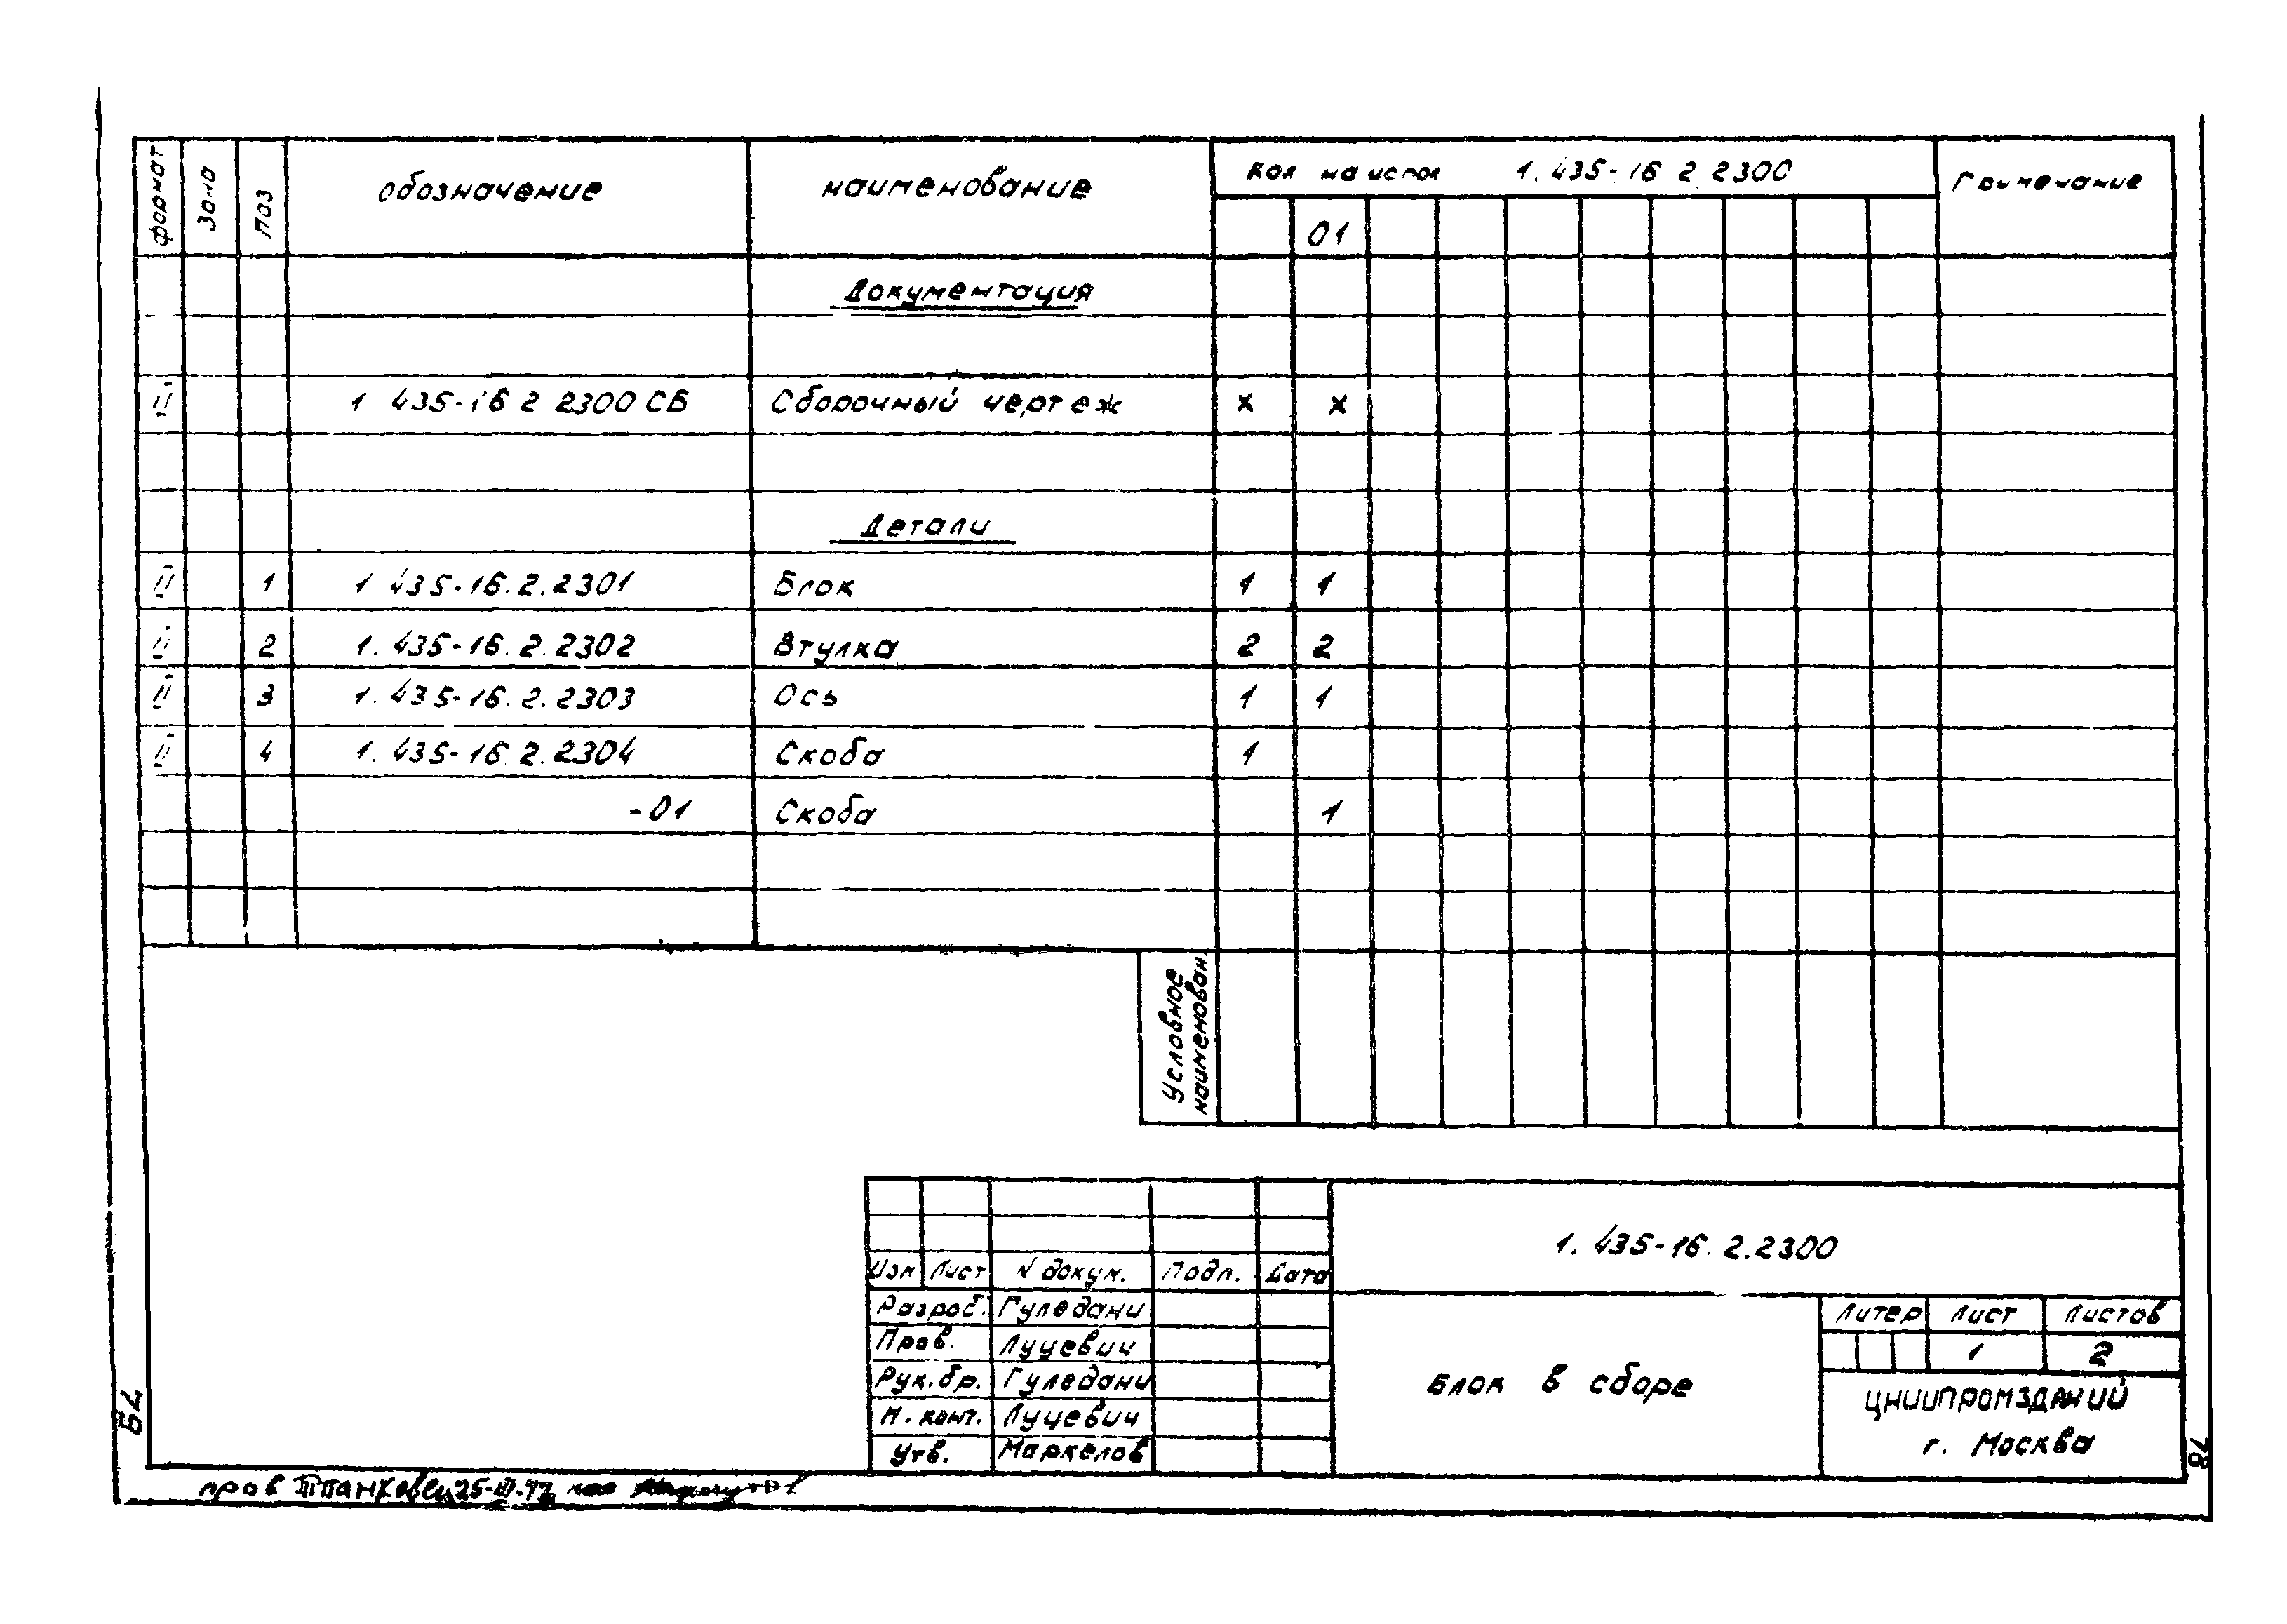 формат Зона поз обозначение наименование Кол на испол 1.435-16 2 2300 Примечание
01
Документация
II 1 435-16 2 2300 СБ Сборочный чертеж х х
Детали
II 1 1 435-16.2.2301 Блок 1 1
II 2 1.435-16.2.2302 Втулка 2 2
II 3 1.435-16.2.2303 Ось 1 1
II 4 1.435-16.2.2304 Скоба 1
-01 Скоба 1
Условное
наименован.
1.435-16.2.2300
Изм Лист N докум. Подп. Дата
Разраб. Гуледани
Пров. Луцевич
Рук.бр. Гуледани
Н.конт. Луцевич
Утв. Маркелов
Блок в сборе
Литер Лист Листов
1 2
ЦНИИПРОМЗДАНИЙ
г. Москва
79
78
пров